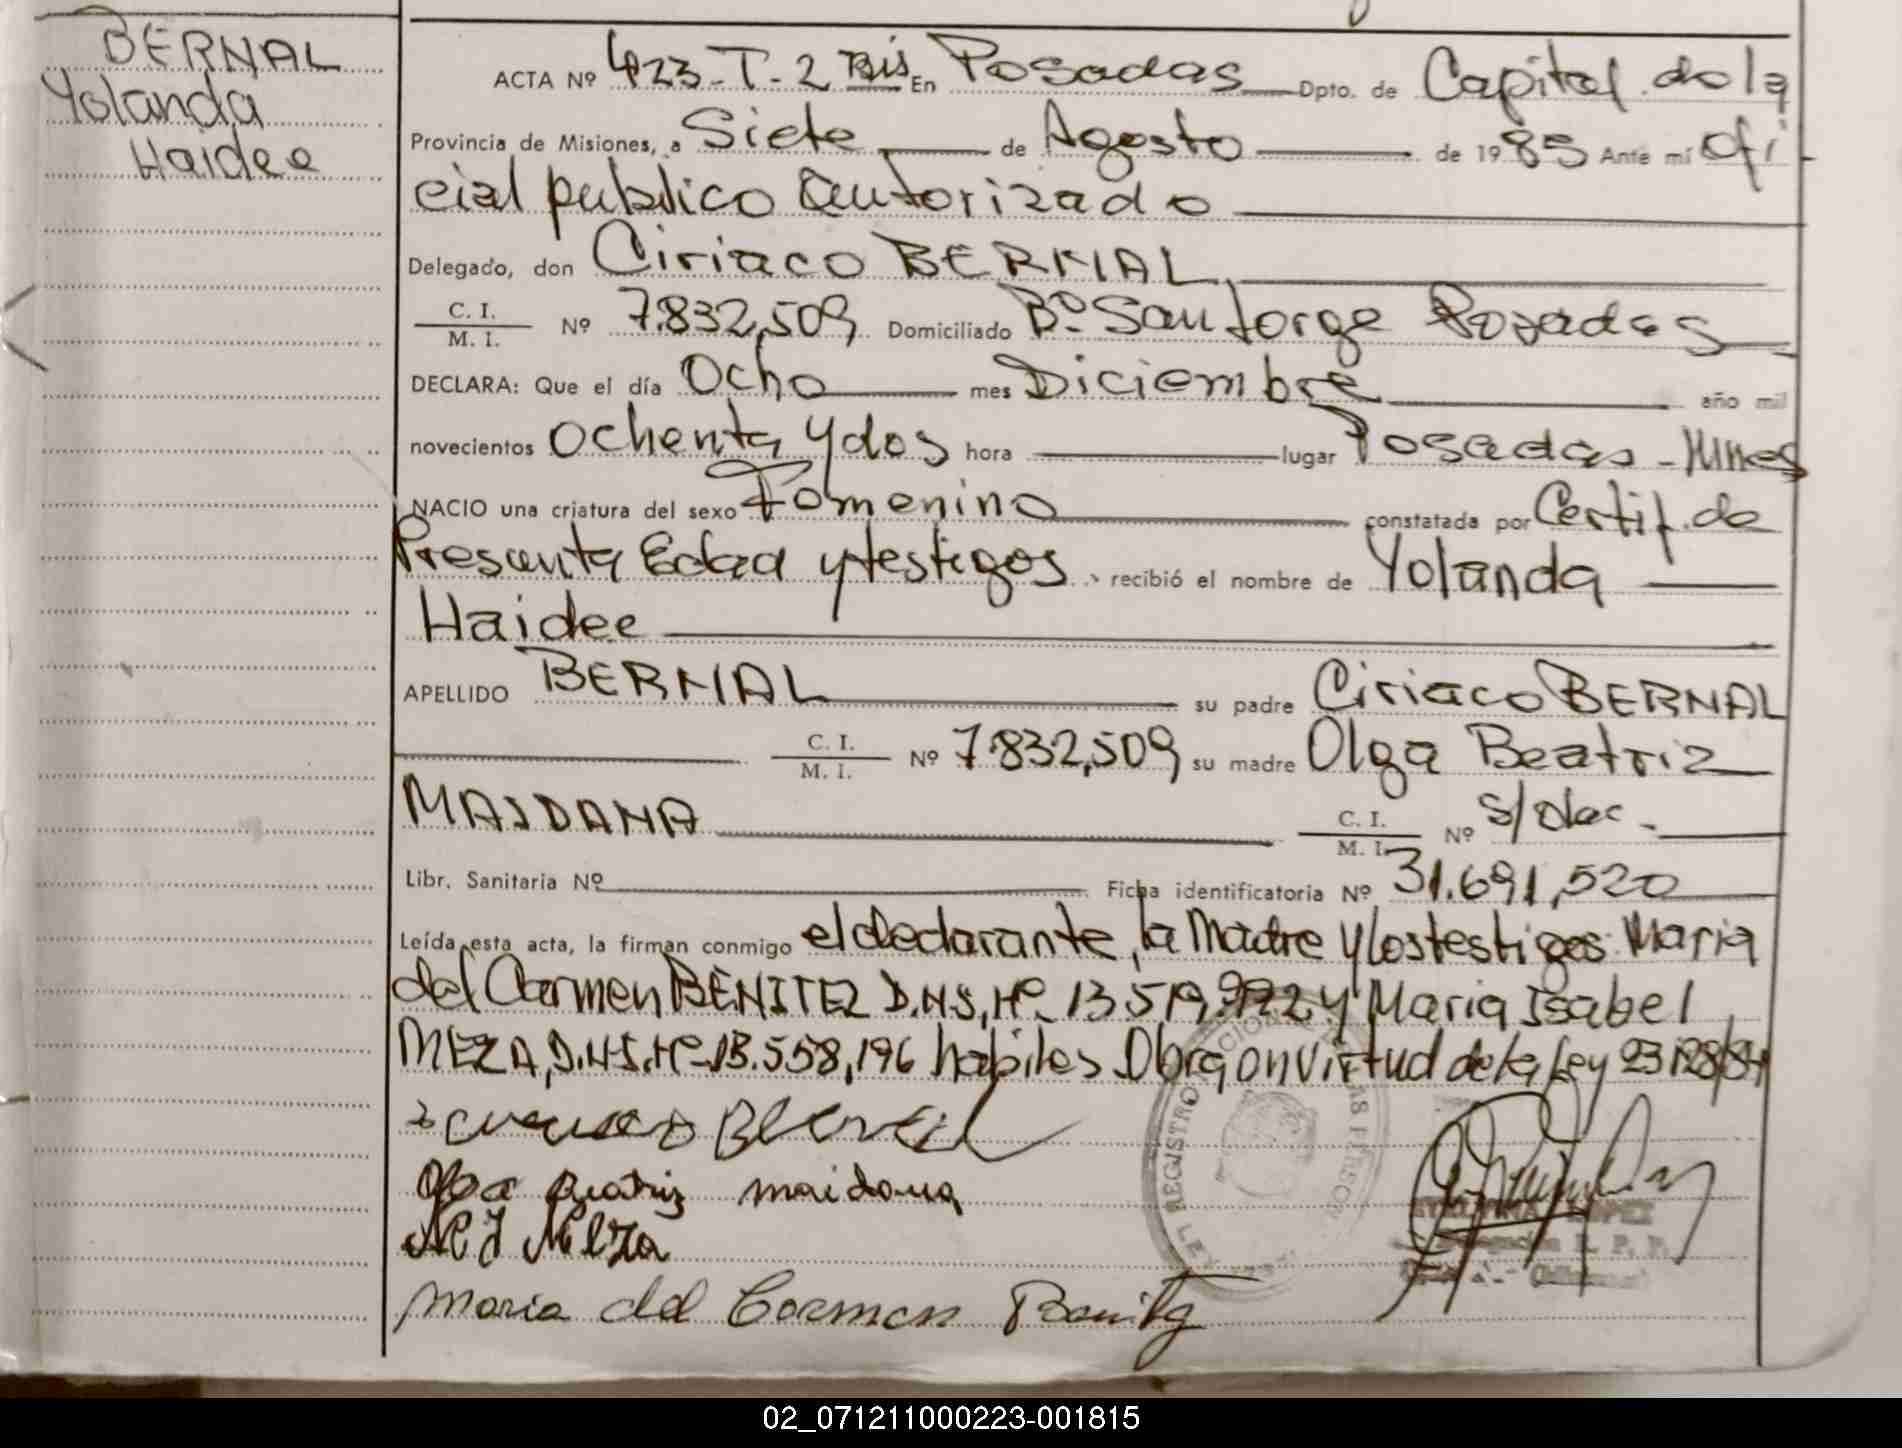 BERNAL
Yolanda
Haidee
ACTA Nº 423-T-2 Bis En Posadas Dpto. de Capital de la
Provincia de Misiones, a Siete de Agosto de 1985 Ante mí Ofi
cial publico Autorizado
Delegado, don Ciriaco BERNAL
C. I.
M. I. Nº 7.832,509 Domiciliado Bº San Jorge Posadas
DECLARA: Que el día Ocho mes Diciembre año mil
novecientos Ochenta y dos hora lugar Posadas - Mnes
NACIO una criatura del sexo Femenino constatada por Certif. de
Presunta Edad y testigos recibió el nombre de Yolanda
Haidee
APELLIDO BERNAL su padre Ciriaco BERNAL
C. I.
M. I. Nº 7.832,509 su madre Olga Beatriz
MAIDANA C. I.
M. I. Nº s/doc.
Libr. Sanitaria Nº Ficha identificatoria Nº 31.691,520
Leída esta acta, la firman conmigo el declarante, la Madre y los testigos: Maria
del Carmen BENITEZ D.N.I. Nº 13.519.992 y Maria Isabel
MEZA, D.N.I. Nº 13.558,196 habiles Obra en virtud de la Ley 23128/84
Olga Beatriz maidana
M I Meza
Maria del Carmen Benitez
REGISTRO
LOPEZ
02_071211000223-001815